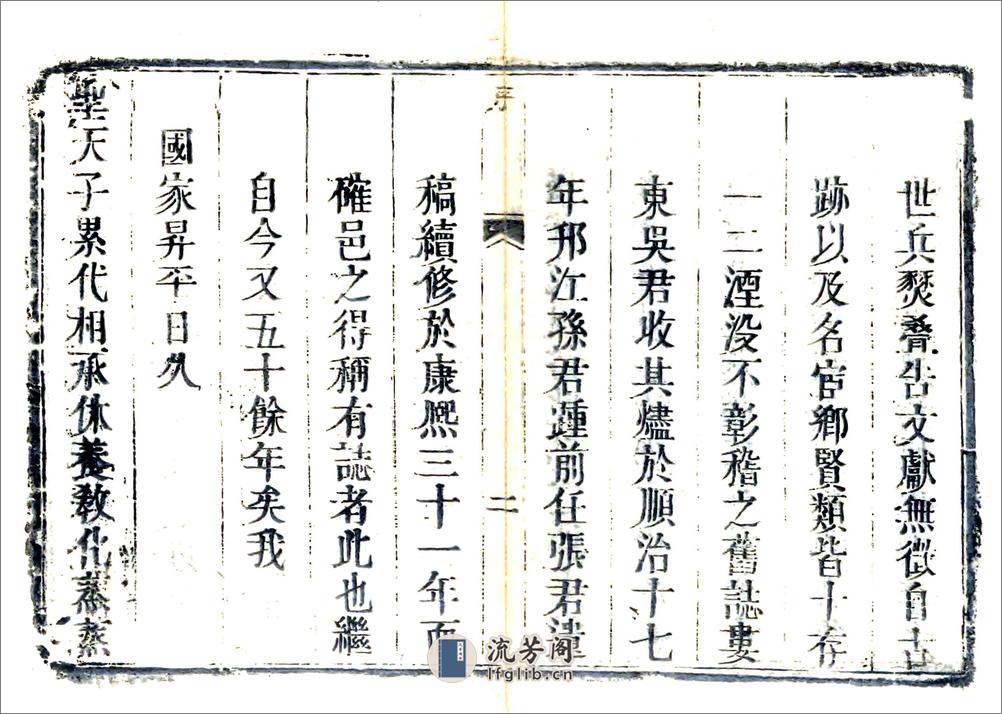 世兵燹叠告文獻無徵自古
跡以及名宦鄉賢類皆十存
一二湮没不彰稽之舊誌婁
東吳君收其燼於順治十七
年邗江孫君踵前任張君遺
序
二
稿續修於康熙三十一年而
確邑之得稱有誌者此也繼
自今又五十餘年矣我
國家昇平日久
聖天子累代相承休養敎化蒸蒸
流芳阁
lfglib.cn